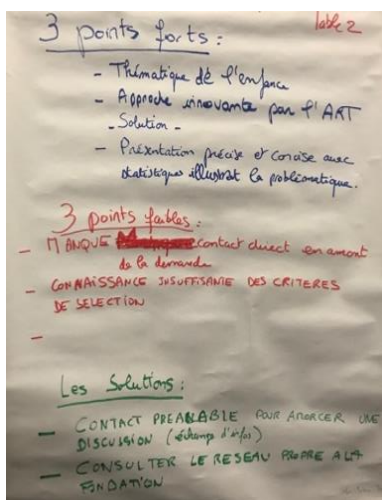 Table 2
3 points forts :
- Thématique de l'enfance
- Approche innovante par l'ART
- Solution -
- Présentation précise et concise avec
statistiques illustrat la problématique.
3 points faibles :
- MANQUE contact direct en amont
de la demande
- CONNAISSANCE INSUFFISANTE DES CRITERES
DE SELECTION
-
Les Solutions :
- CONTACT PREALABLE POUR AMORCER UNE
DISCUSSION (échange d'infos)
- CONSULTER LE RESEAU PROPRE A LA
FONDATION